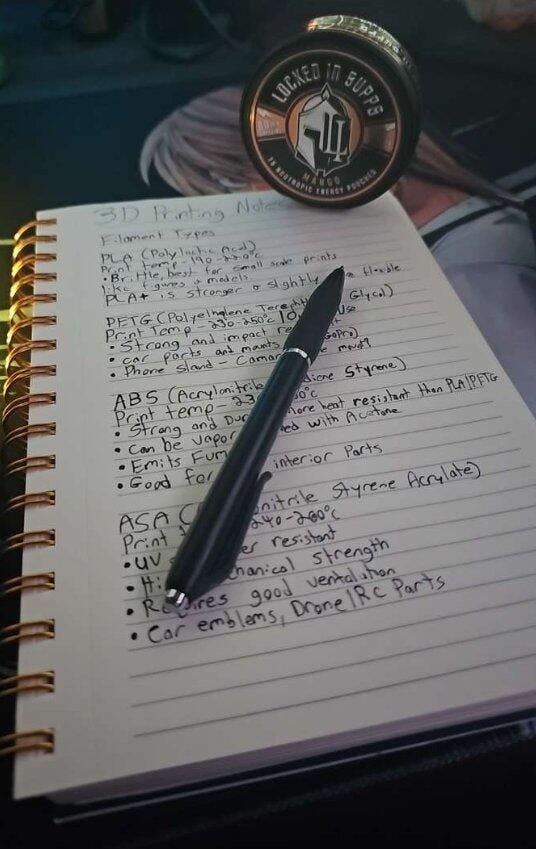 LOCKED IN SUPPS
MANGO
15 NOOTROPIC ENERGY POUCHES
3D Printing Notes
Filament Types
PLA (Polylactic Acid)
Print temp - 190-220°c
• Brittle, best for small scale prints
like figures & models
PLA+ is stronger & slightly flexible
PETG (Polyethylene Glycol)
Print Temp - 230-250°c Use
• Strong and impact
• car parts and mounts
• Phone stand -
ABS (Acrylonitrile Styrene)
Print temp -
• Strong and more heat resistant than PLA/PETG
• Can be Vapor with Acetone
• Emits
• Good for interior Parts
ASA ( Styrene Acrylate)
Print 240-260°c
• UV resistant
• strength
• good ventilation
• Car emblems, Drone/RC Parts